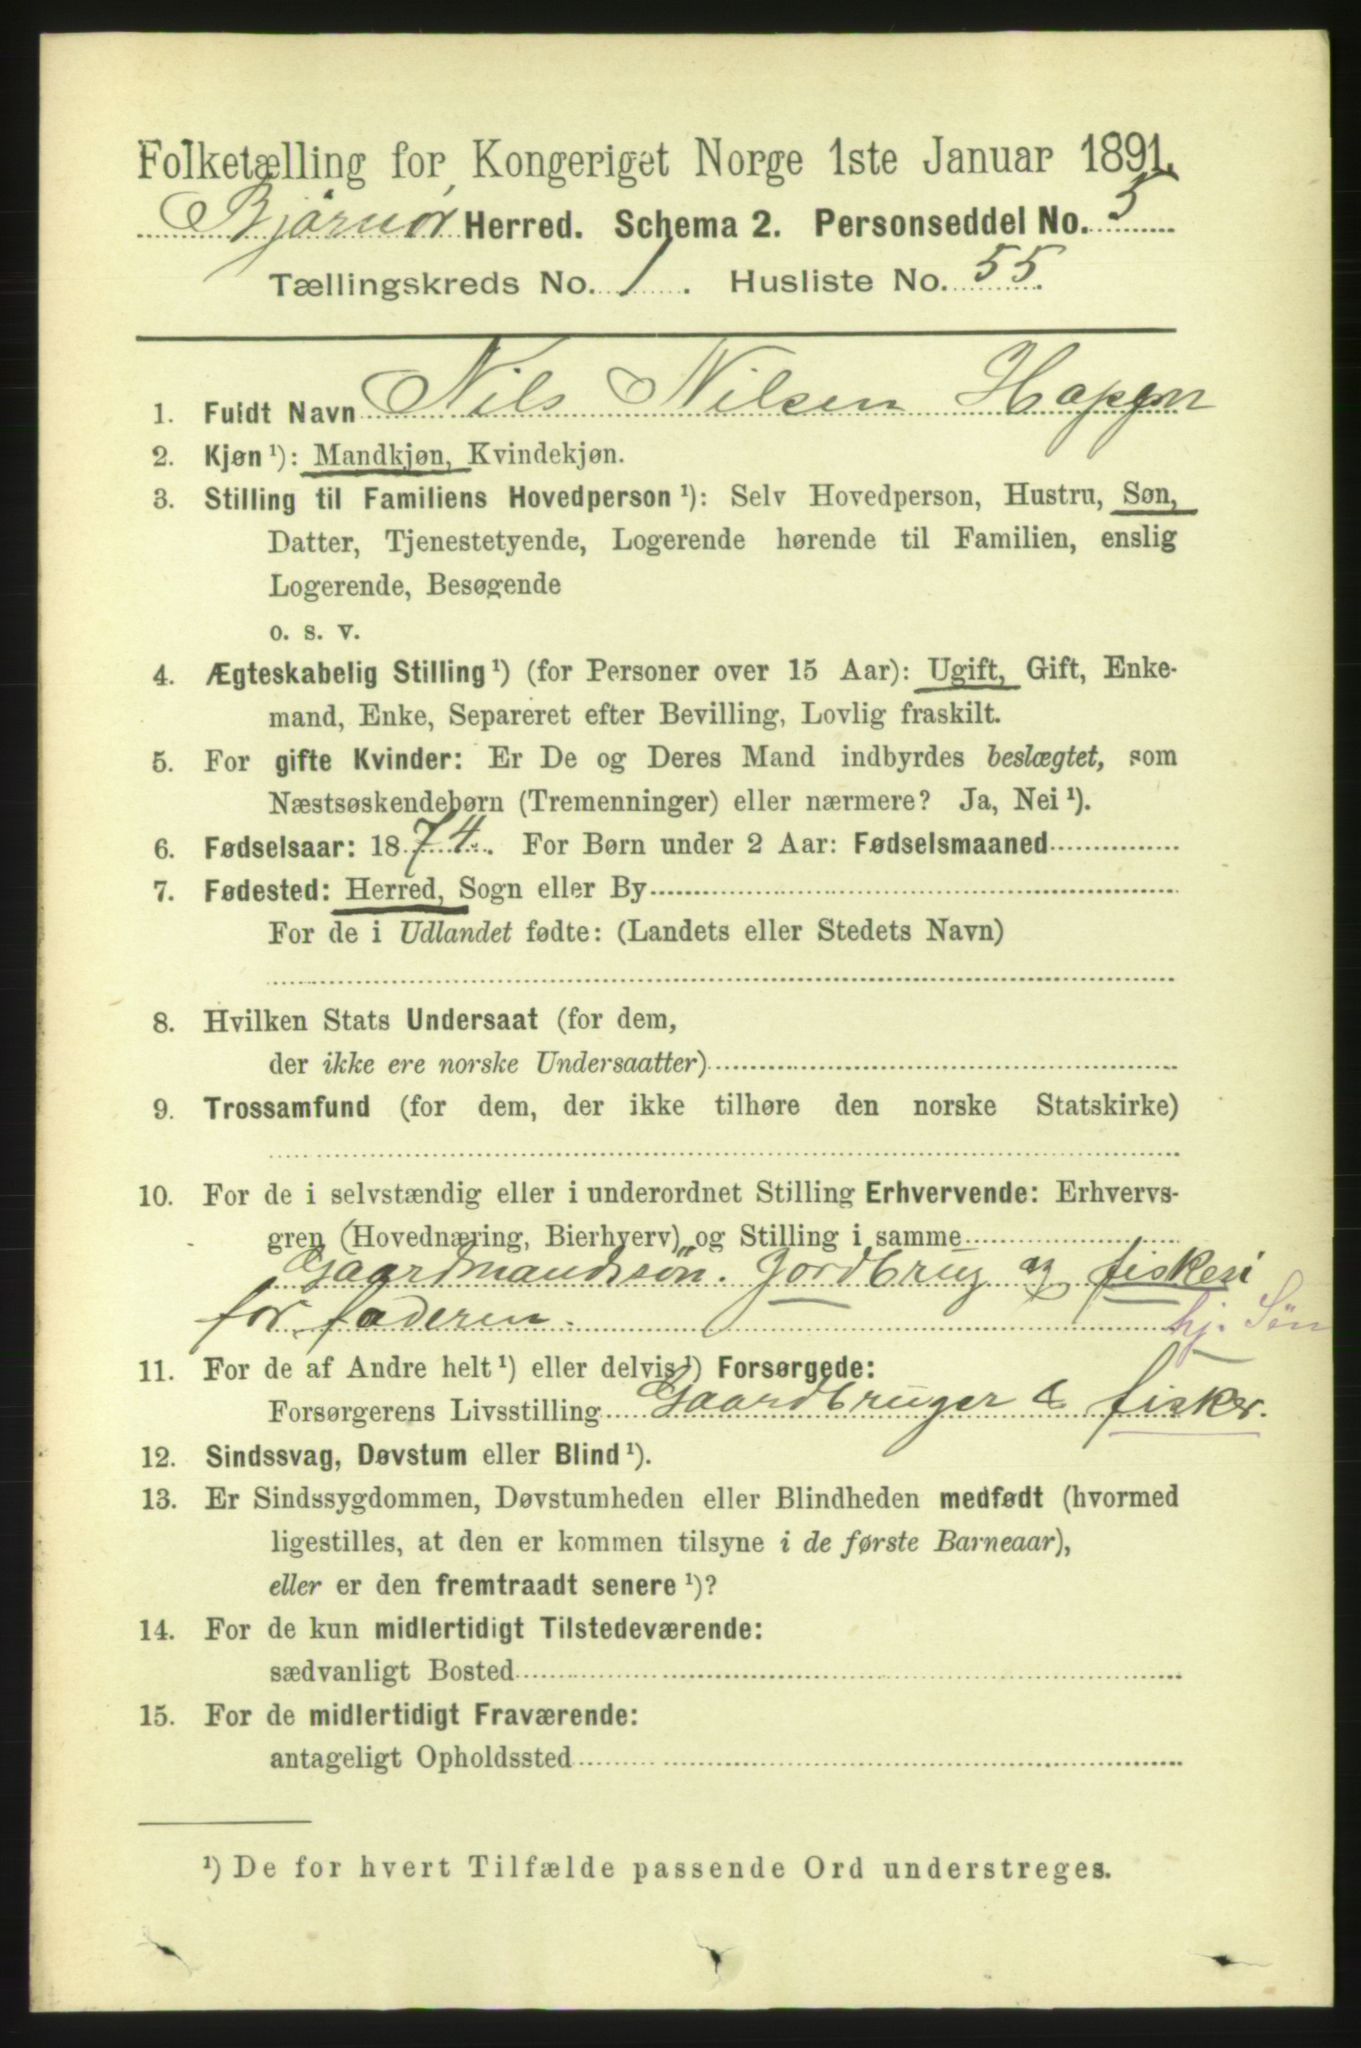 Folketælling for Kongeriget Norge 1ste Januar 1891.
Bjørnør Herred. Schema 2. Personseddel No. 5
Tællingskreds No. 1. Husliste No. 55.
1. Fuldt Navn Nils Nilsen Hopen
2. Kjøn ¹): Mandkjøn, Kvindekjøn.
3. Stilling til Familiens Hovedperson ¹): Selv Hovedperson, Hustru, Søn,
Datter, Tjenestetyende, Logerende hørende til Familien, enslig
Logerende, Besøgende
o. s. v.
4. Ægteskabelig Stilling ¹) (for Personer over 15 Aar): Ugift, Gift, Enke-
mand, Enke, Separeret efter Bevilling, Lovlig fraskilt.
5. For gifte Kvinder: Er De og Deres Mand indbyrdes beslægtet, som
Næstsøskendebørn (Tremenninger) eller nærmere? Ja, Nei ¹).
6. Fødselsaar: 1874. For Børn under 2 Aar: Fødselsmaaned
7. Fødested: Herred, Sogn eller By
For de i Udlandet fødte: (Landets eller Stedets Navn)
8. Hvilken Stats Undersaat (for dem,
der ikke ere norske Undersaatter)
9. Trossamfund (for dem, der ikke tilhøre den norske Statskirke)
10. For de i selvstændig eller i underordnet Stilling Erhvervende: Erhvervs-
gren (Hovednæring, Bierhverv) og Stilling i samme
Gaardmandssøn. Jordbrug og fiskeri
for faderen. hj. Søn
11. For de af Andre helt ¹) eller delvis ¹) Forsørgede:
Forsørgerens Livsstilling Gaardbruger & fisker.
12. Sindssvag, Døvstum eller Blind ¹).
13. Er Sindssygdommen, Døvstumheden eller Blindheden medfødt (hvormed
ligestilles, at den er kommen tilsyne i de første Barneaar),
eller er den fremtraadt senere ¹)?
14. For de kun midlertidigt Tilstedeværende:
sædvanligt Bosted
15. For de midlertidigt Fraværende:
antageligt Opholdssted
¹) De for hvert Tilfælde passende Ord understreges.